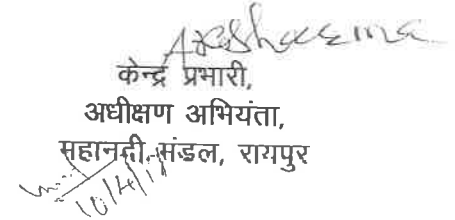 केन्द्र प्रभारी,
अधीक्षण अभियंता,
महानदी मंडल, रायपुर